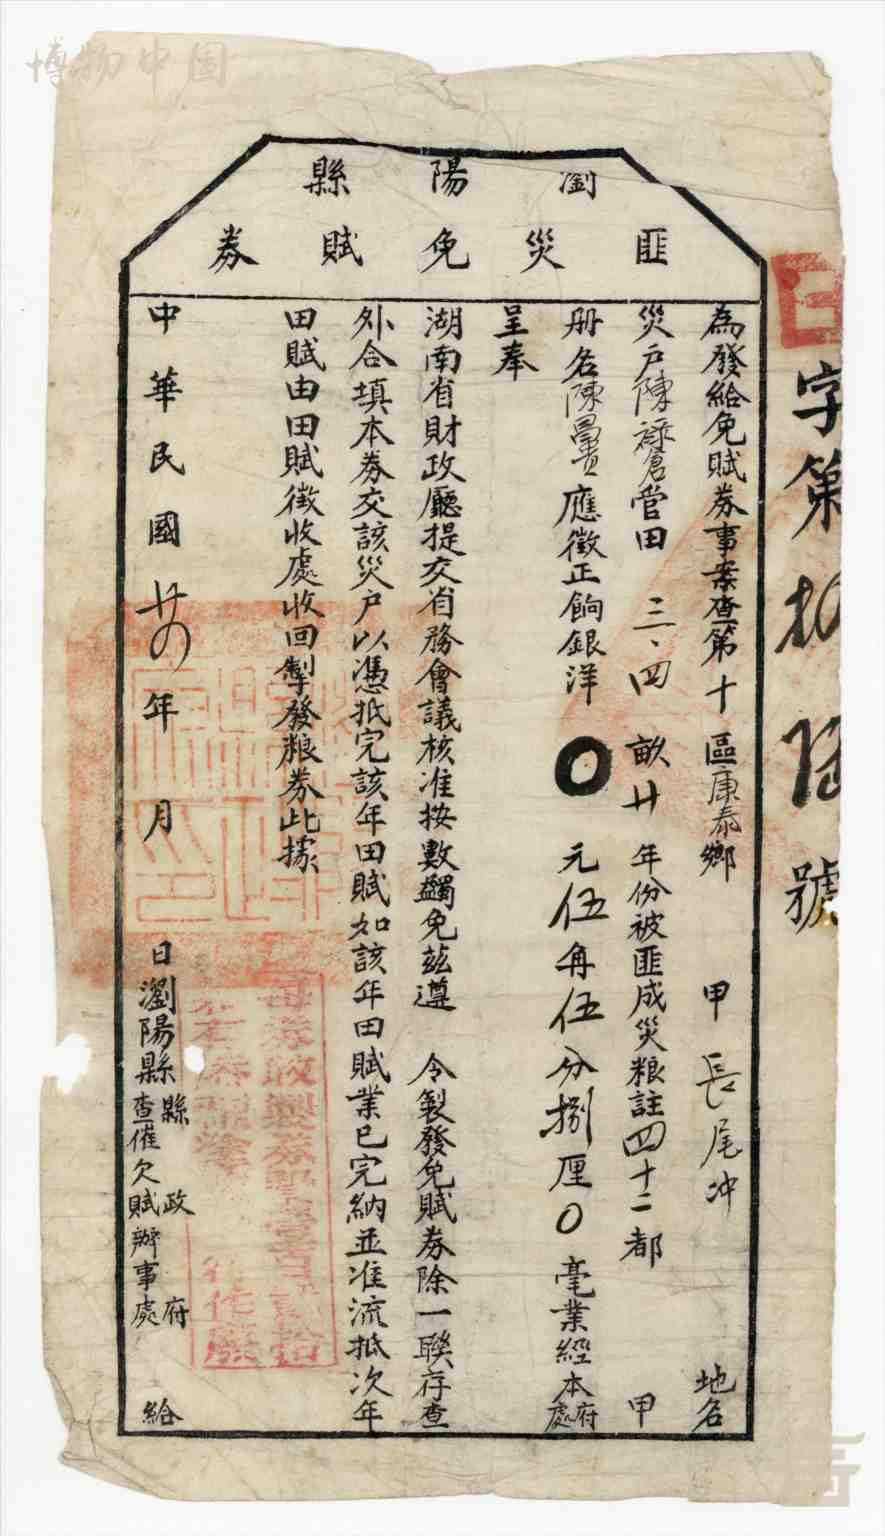 博物中国
瀏陽縣
匪災免賦券
字第拾陸號
為發給免賦券事案查第十區康泰鄉 甲長尾冲 地名
災戶陳祿倉管田三.四畝廿年份被匪成災粮註四十二都 甲
册名陳昌貴應徵正餉銀洋〇元伍角伍分捌厘〇毫業經本府處
呈奉
湖南省財政廳提交省務會議核准按數蠲免茲遵 令製發免賦券除一聯存查
外合填本券交該災戶以憑抵完該年田賦如該年田賦業已完納並准流抵次年
田賦由田賦徵收處收回掣發粮券此據
中華民國廿四年 月 日瀏陽縣縣政府查催欠賦辦事處 給